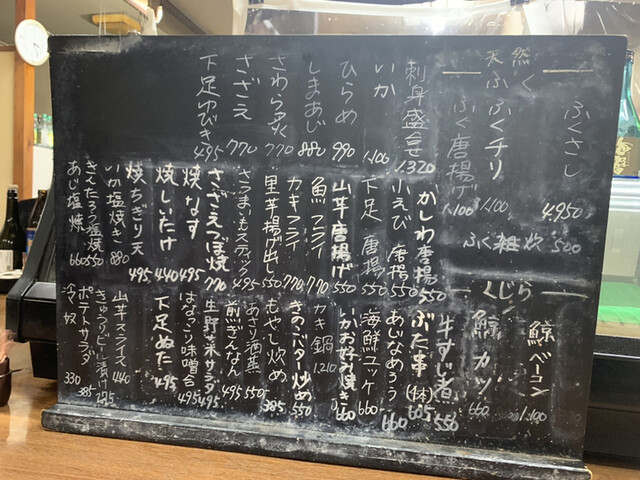 天然ふく
ふくさし 4.950
ふくチリ 1.100
ふく唐揚げ 1.100
ふく雑炊 500
くじら
鯨ベーコン 1.100
鯨カツ 660
刺身盛合せ 1.320
いか 1.100
ひらめ 990
しまあじ 880
さわら炙 770
さざえ 770
下足ゆびき 495
かしわ唐揚 550
小えび唐揚 550
下足唐揚 550
山芋唐揚げ 550
魚フライ 770
カキフライ 770
里芋揚げ出し 550
さつまいもスティック 495
さざえつぼ焼 770
焼なす 495
焼しいたけ 440
焼ちぎり天 495
いか塩焼き 880
きんたろう塩焼 550
あじ塩焼 660
牛すじ煮 550
ぶた串(1本) 605
あじなめろう 660
海鮮ユッケ 660
いかお好み焼き 660
カキ鍋 1.210
きのこバター炒め 550
もやし炒め 385
あさり酒蒸 550
煎ぎんなん 495
生野菜サラダ 495
はなっこり味噌合 495
下足ぬた 495
山芋スライス 440
きゅうりビール漬け
ポテトサラダ 385
冷奴 330